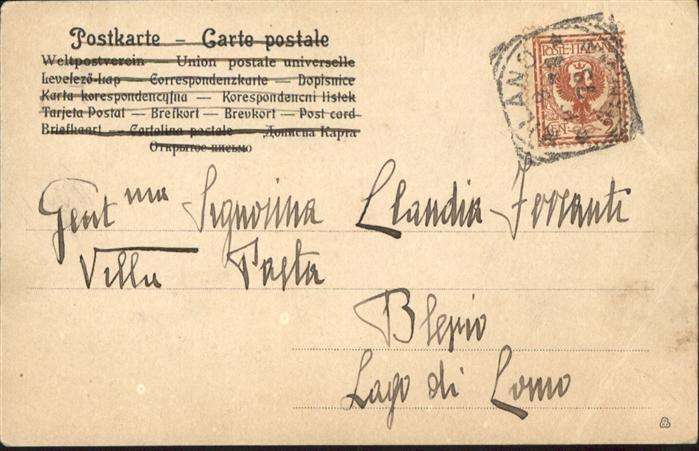 Postkarte – Carte postale
Weltpostverein – Union postale universelle
Levelező-Lap – Correspondenzkarte – Dopisnice
Karta korespondencyjna – Korespondencni listek
Tarjeta Postal – Brefkort – Brevkort – Post card
Briefkaart – Cartolina postale – Дописна Карта
Открытое письмо
POSTE ITALIANE
MILANO
Gent ma Signorina Claudia Ferranti
Villa Pasta
Blevio
Lago di Como